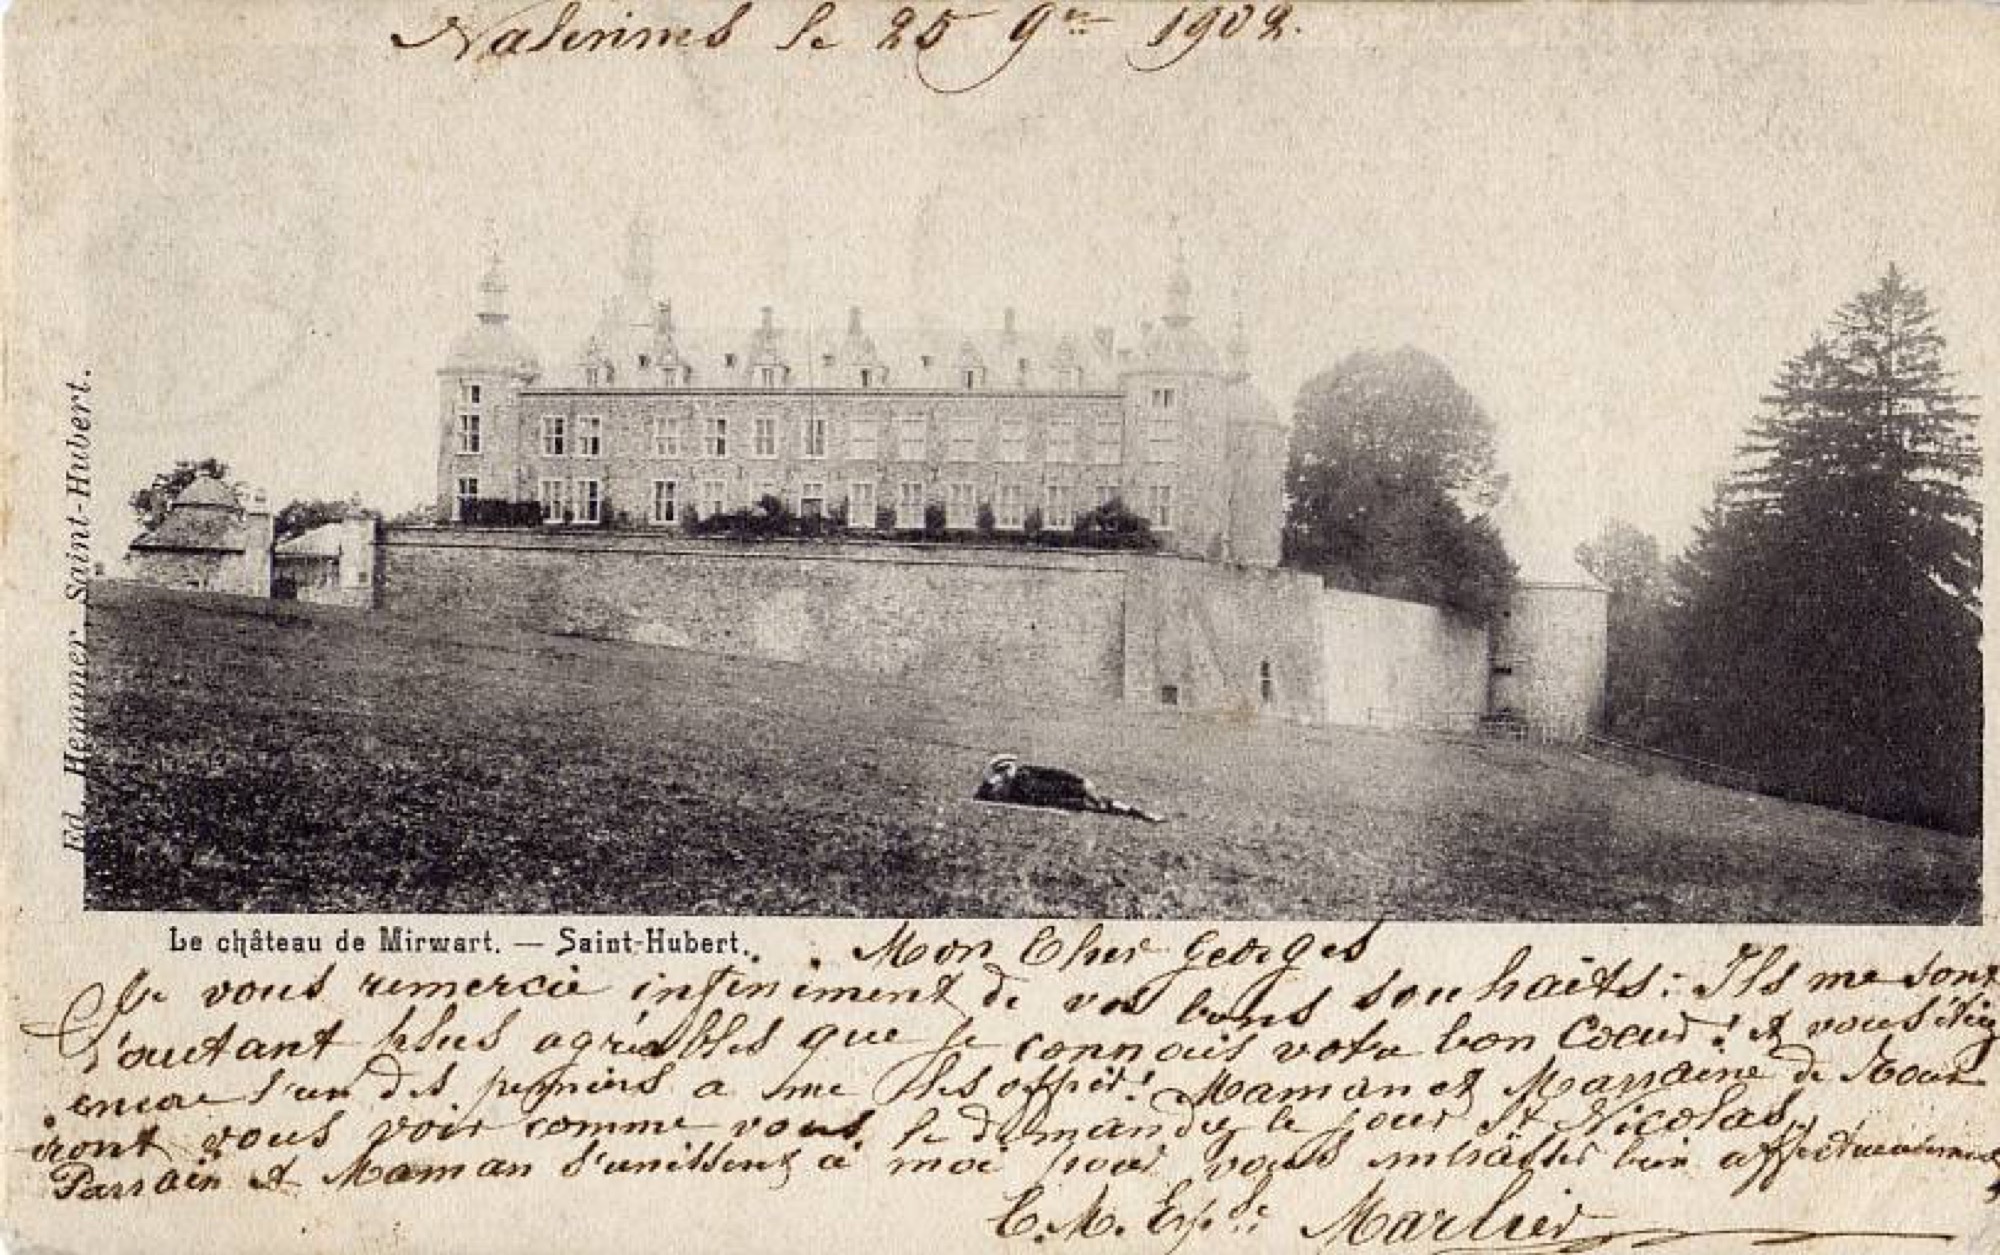 Nalinnes le 25 9bre 1902.
Ed. Hemmer, Saint-Hubert.
Le château de Mirwart. — Saint-Hubert.
Mon Cher Georges
Je vous remercie infiniment de vos bons souhaits: Ils me sont
d'autant plus agréables que je connais votre bon Coeur! et vous étiez
encore l'un des premiers a me les offrir! Maman et Marraine de
iront vous voir comme vous le demandez le jour St Nicolas.
Parrain et Maman s'unissent à moi pour vous embrasser bien affectueusement
C. M. Marlier